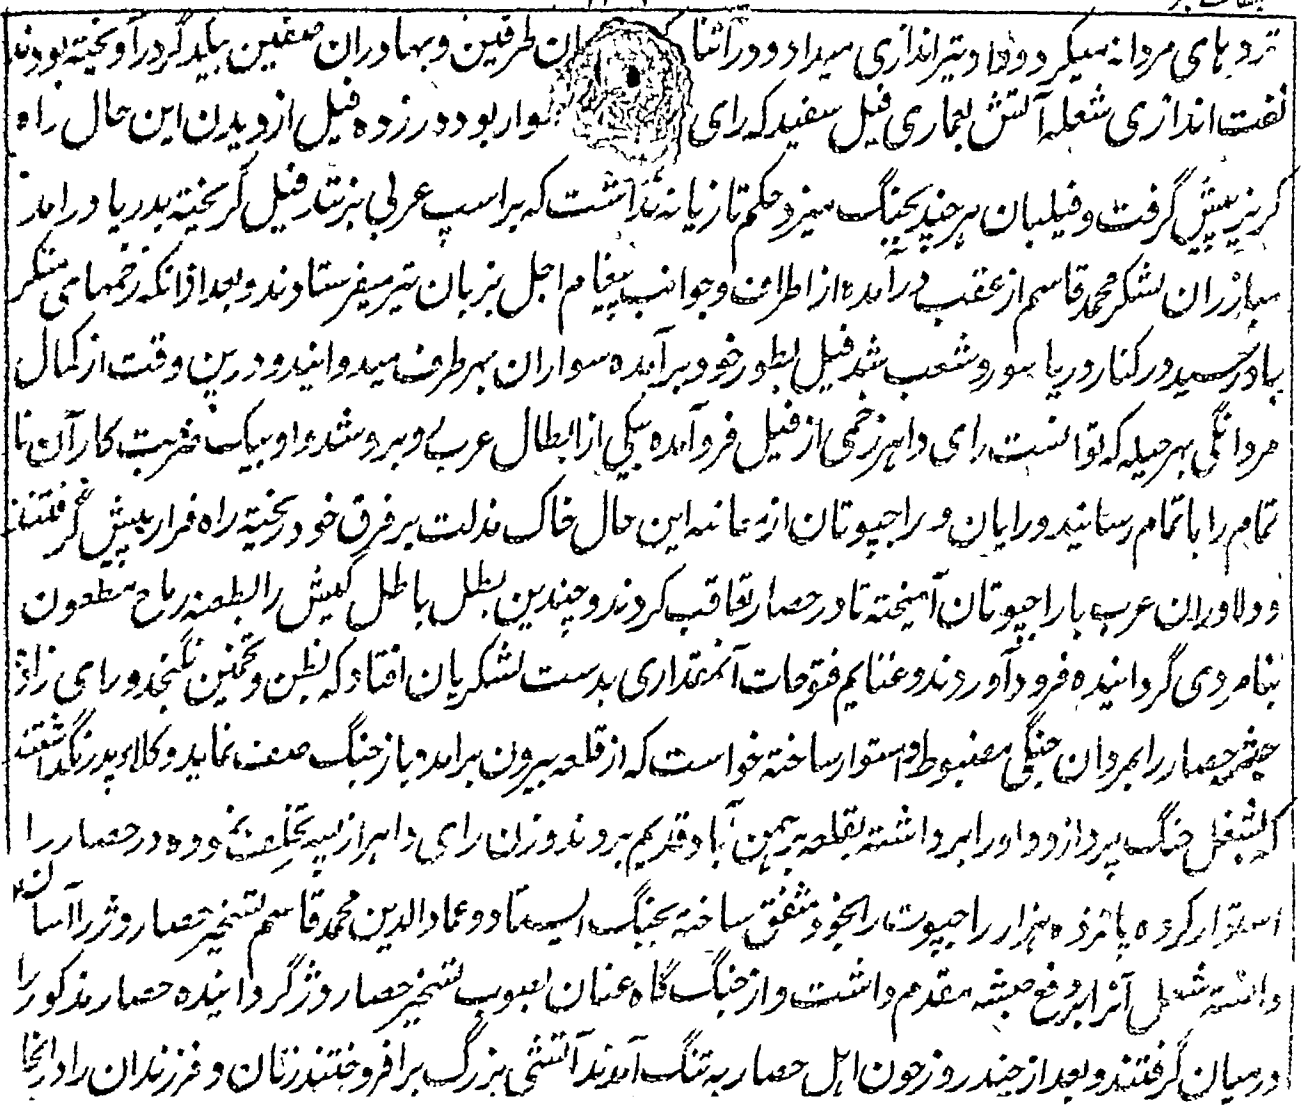 تردهای مردانه میکرد و داد تیراندازی میداد و در اثنا ان طرفین و بهادران صفین بیکدگر درآویخته بودند
نفت اندازی شعله آتش بعماری فیل سفید که رای سوار بود در زده فیل از دیدن این حال راه
گریز پیش گرفت و فیلبان هرچند بچنگ میزد حکم تازیانه نداشت که بر اسپ عربی بزنند فیل گریخته بدریا درامد
مبازران لشکر محمد قاسم از عقب درآمده از اطراف و جوانب پیغام اجل بزبان تیر میفرستادند و بعد ازانکه زخمهای منکر
باو رسید در کنار دریا شور و شعب شد فیل بطور خود برآمده سواران بهر طرف میدوانید و درین وقت از کمال
مردانگی بهر حیله که توانست رای داهر زخمی از فیل فرو آمده بیکی از ابطال عرب روبرو شد و او بیک ضربت کار آن نا
تمام را باتمام رسانید و رایان و راجپوتان از معاینه این حال خاک مذلت بر فرق خود ریخته راه فرار پیش گرفتند
و دلاوران عرب با راجپوتان آمیخته تا در حصار تعاقب کردند و چندین بطل باطل کیش را بطعنه رماح مطعون
بنامردی گردانیده فرود آوردند و غنایم فتوحات آنمقداری بدست لشکریان افتاد که بظن و تخمین نگنجد و رای زاده
حصار را بمردان جنگی مضبوط و استوار ساخته خواست که از قلعه بیرون برامد و باز جنگ صف نماید وکلاء پدر نگذاشتند
که بشغل جنگ پردازد و او را برداشته بقلعه برهمن آباد قدیم بردند و زن رای داهر از پسر تخلف نموده در حصار را
استوار کرده پانزده هزار راجپوت را بخود متفق ساخته بجنگ ایستاد و عماد الدین محمد قاسم تسخیر حصار و ژر را آسان
دانسته شغل آنرا بر دفع مقدم داشت و از جنگ گاه عنان بصوب تسخیر حصار و ژر گردانیده حصار مذکور را
در میان گرفتند و بعد از چند روز چون اهل حصار به تنگ آمدند آتشی بزرگ برافروختند زنان و فرزندان را در انجا